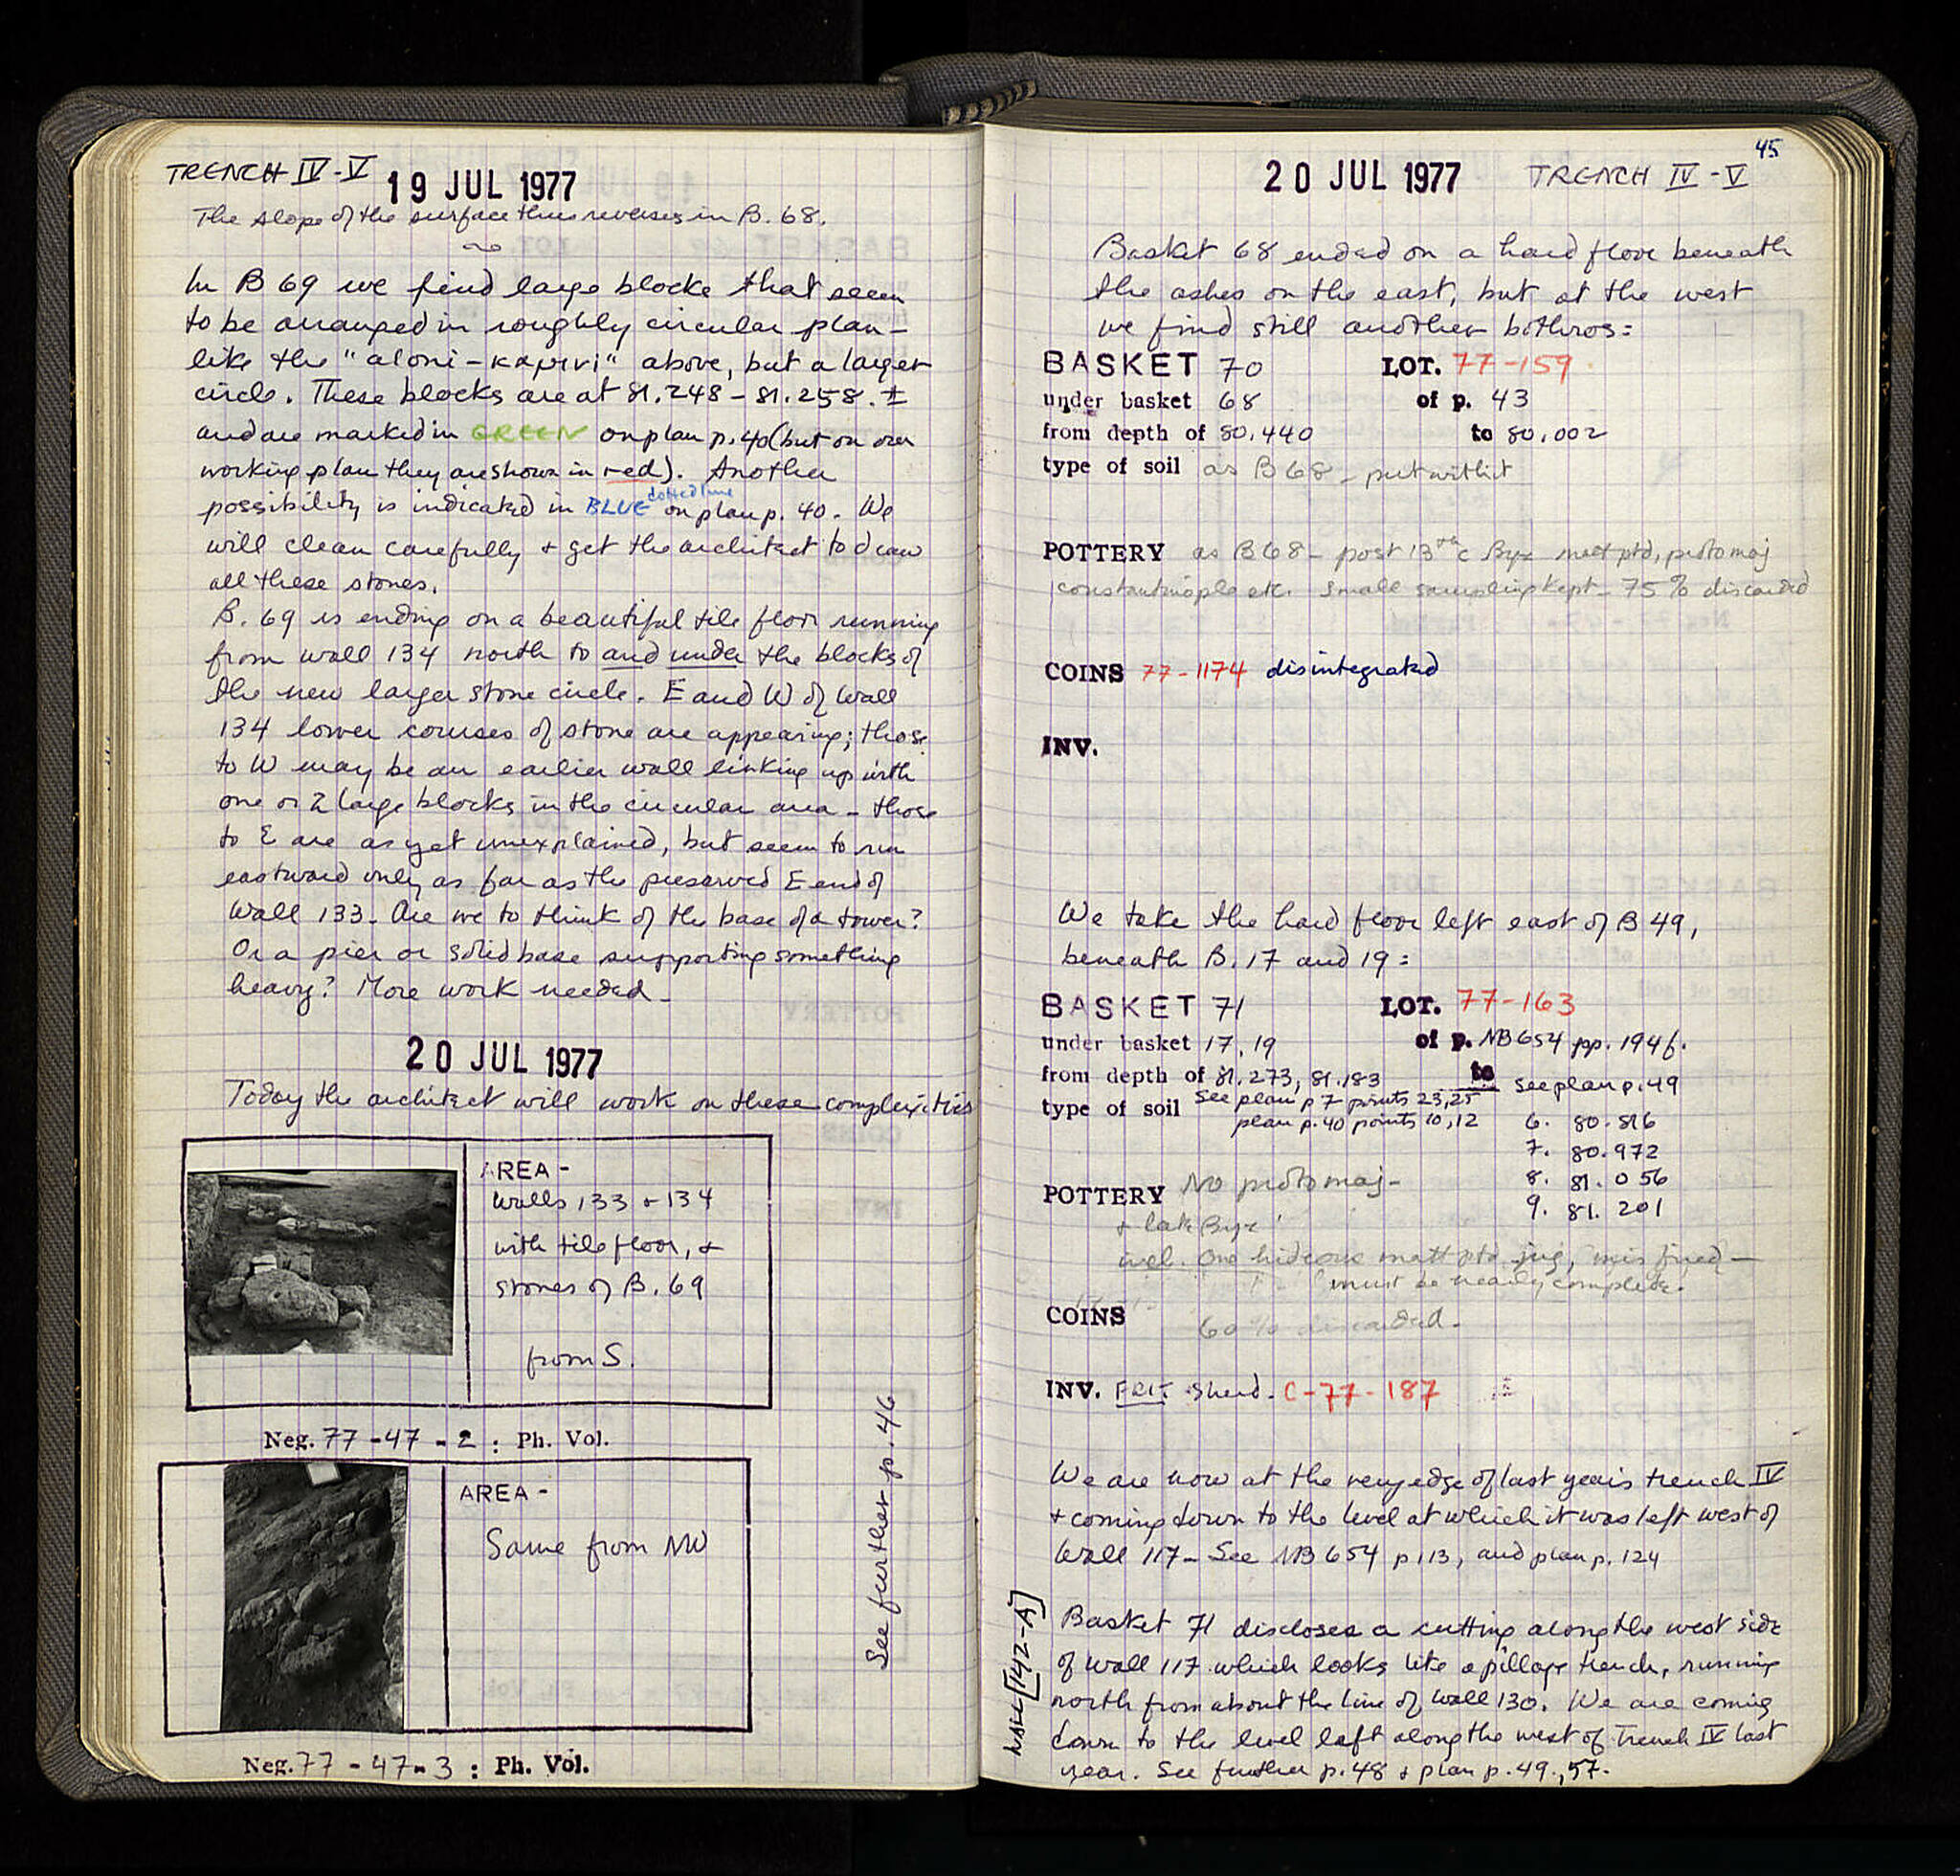 TRENCH IV-V 19 JUL 1977
The slope of the surface thus reverses in B. 68.
In B 69 we find large blocks that seem
to be arranged in roughly circular plan -
like the "aloni-καμινι" above, but a larger
circle. These blocks are at 81.248 - 81.258. ±
and are marked in GREEN on plan p. 40 (but on our
working plan they are shown in red). Another
possibility is indicated in BLUE dotted line on plan p. 40. We
will clean carefully + get the architect to draw
all these stones.
B. 69 is ending on a beautiful tile floor running
from wall 134 north to and under the blocks of
the new larger stone circle. E and W of wall
134 lower courses of stone are appearing; those
to W may be an earlier wall linking up with
one or 2 large blocks in the circular area - those
to E are as yet unexplained, but seem to run
eastward only as far as the preserved E end of
Wall 133. Are we to think of the base of a tower?
Or a pier or solid base supporting something
heavy? More work needed -
20 JUL 1977
Today the architect will work on these complexities
AREA -
Walls 133 + 134
with tile floor, +
stones of B. 69
from S.
Neg. 77-47-2 : Ph. Vol.
AREA -
Same from NW
Neg. 77-47-3 : Ph. Vol.
See further p. 46
45
20 JUL 1977 TRENCH IV-V
Basket 68 ended on a hard floor beneath
the ashes on the east, but at the west
we find still another bothros:
BASKET 70 LOT. 77-159
under basket 68 of p. 43
from depth of 80.440 to 80.002
type of soil as B 68 - put with it
POTTERY as B 68 - post 13th c Byz matt ptd, proto maj
constantinople etc. Small sampling kept - 75% discarded
COINS 77-1174 disintegrated
INV.
We take the hard floor left east of B 49,
beneath B. 17 and 19:
BASKET 71 LOT. 77-163
under basket 17, 19 of p. NB 654 pp. 194f.
from depth of 81.273, 81.183 to see plan p. 49
type of soil see plan p 7 points 23, 25
plan p. 40 points 10, 12
6. 80.816
7. 80.972
8. 81.056
9. 81.201
POTTERY No proto maj -
+ late Byz
incl. One hideous matt ptd jug, mis fired -
must be nearly complete.
COINS
60% discarded -
INV. FRIT sherd. C-77-187
We are now at the very edge of last year's trench IV
+ coming down to the level at which it was left west of
Wall 117 - See NB 654 p 113, and plan p. 124
WALL [142-A]
Basket 71 discloses a cutting along the west side
of wall 117 which looks like a pillage trench, running
north from about the line of Wall 130. We are coming
down to the level left along the west of Trench IV last
year. See further p. 48 + plan p. 49., 57.